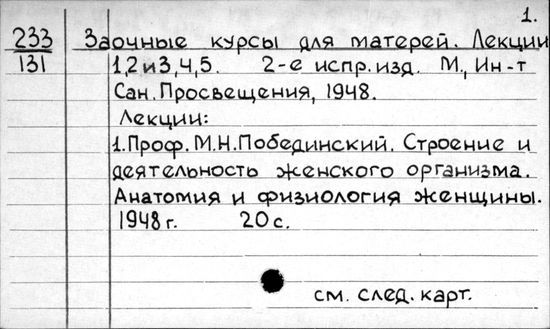 1.
233 Заочные курсы для матерей. Лекции
131 1,2и3,4,5. 2-е испр.изд. М., Ин-т
Сан. Просвещения, 1948.
Лекции:
1.Проф. М.Н.Побединский. Строение и
деятельность женского организма.
Анатомия и физиология женщины.
1948г. 20с.
см. след. карт.